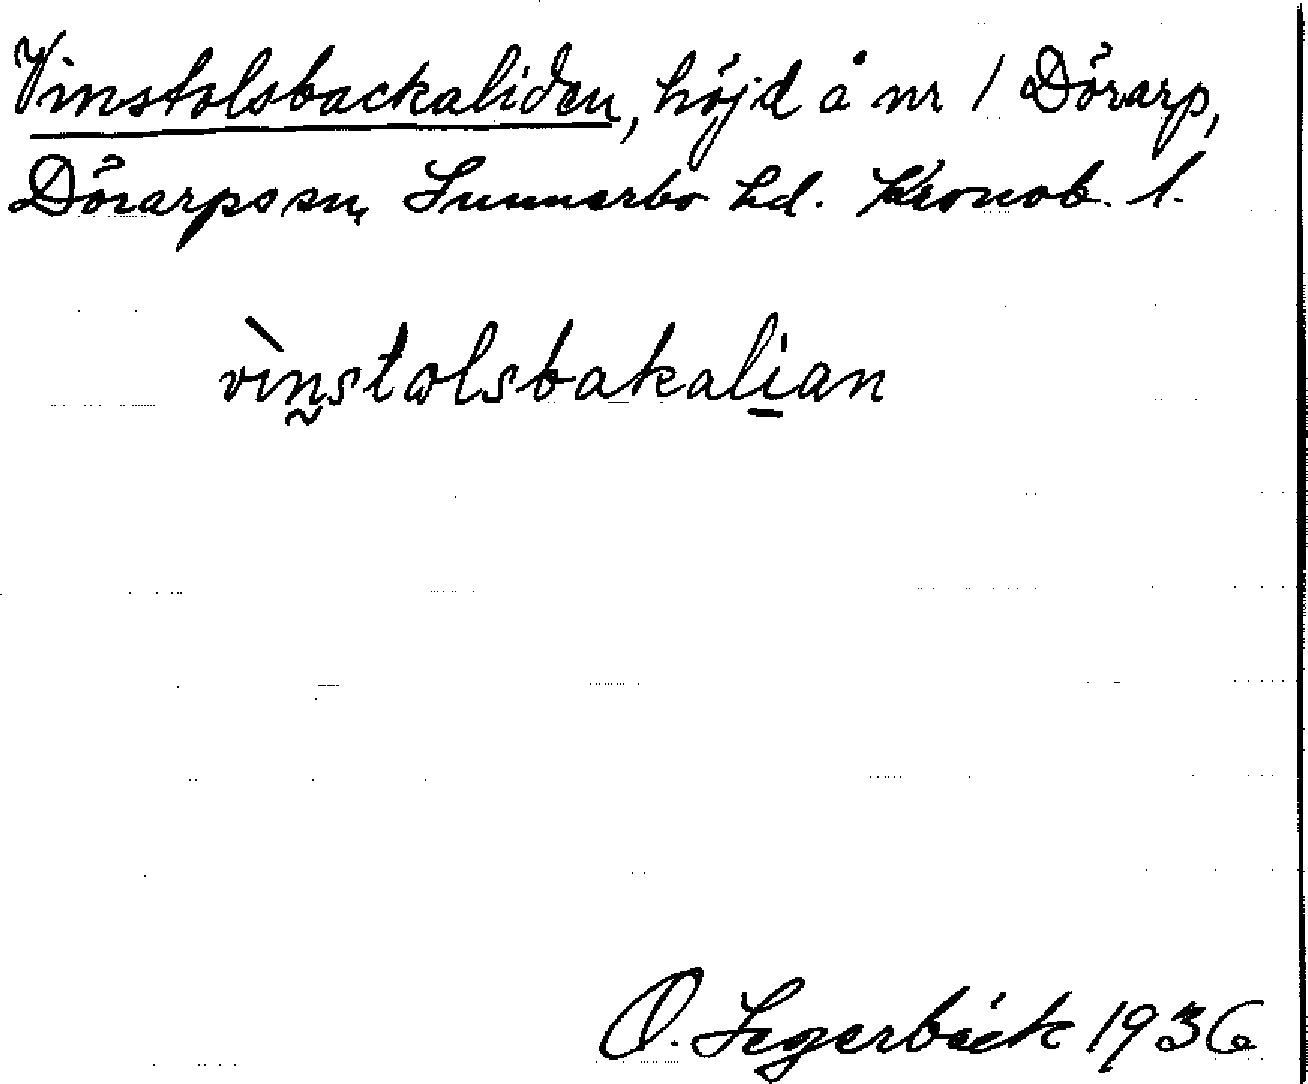 Vinstolsbackaliden, höjd å nr 1 Dörarp,
Dörarps sn, Sunnerbo hd. Kronob. l.
vìn̰stolsbakali̠an
O. Segerbäck 1936